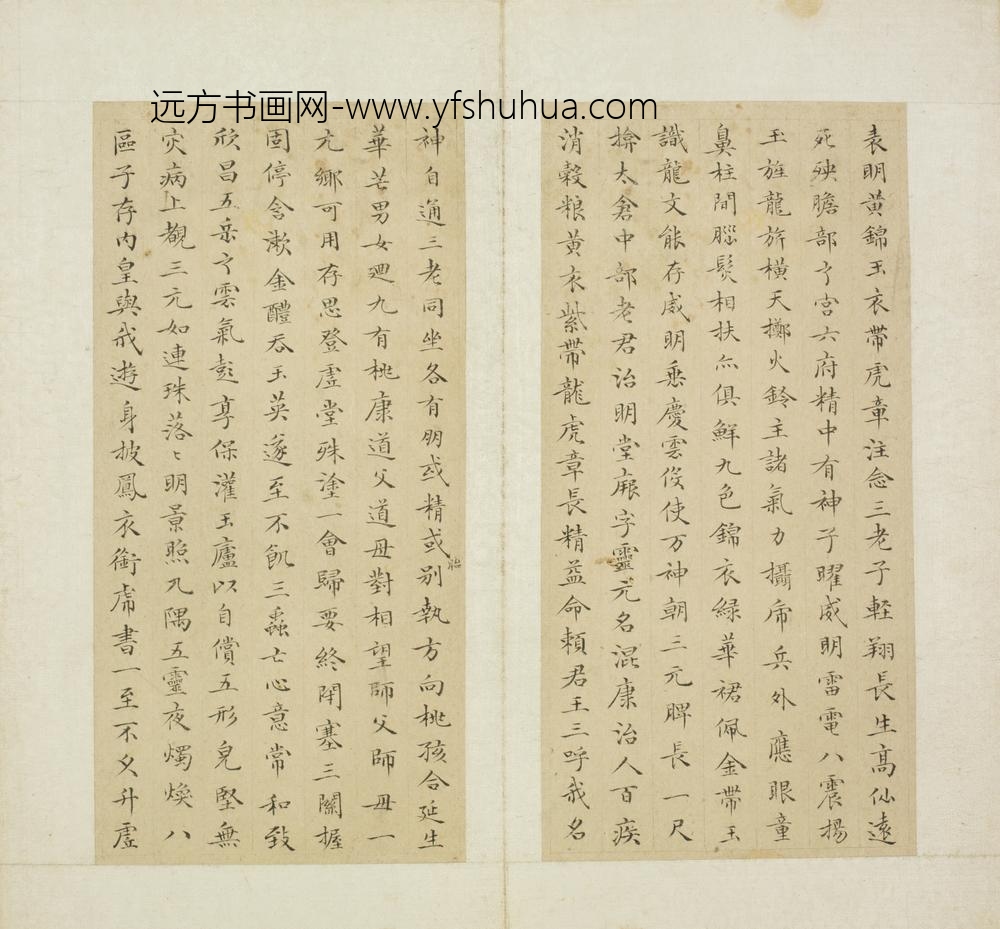 远方书画网-www.yfshuhua.com
表明黄錦玉衣帶虎章注念三老子軽翔長生高仙遠
死殃膽部之宮六府精中有神子曜威明雷電八震揚
玉旌龍旂橫天擲火鈴主諸氣力攝帝兵外應眼童
鼻柱間腦髮相扶亦俱鮮九色錦衣緑華裙佩金帶玉
識龍文能存威明乘慶雲役使万神朝三元脾長一尺
揜太倉中部老君治明堂厥字靈元名混康治人百疾
消穀粮黄衣紫帶龍虎章長精益命賴君王三呼我名
神自通三老同坐各有朋或精或胎别執方向桃孩合延生
華芒男女迴九有桃康道父道母對相望師父師母一
元鄉可用存思登虚堂殊塗一會歸要終閉塞三關握
固停含漱金醴吞玉英遂至不飢三蟲亡心意常和致
欣昌五岳之雲氣彭亨保灌玉廬以自償五形完堅無
災病上覩三元如連珠落々明景照九隅五靈夜燭煥八
區子存内皇與我遊身披鳳衣銜虎書一至不久升虚